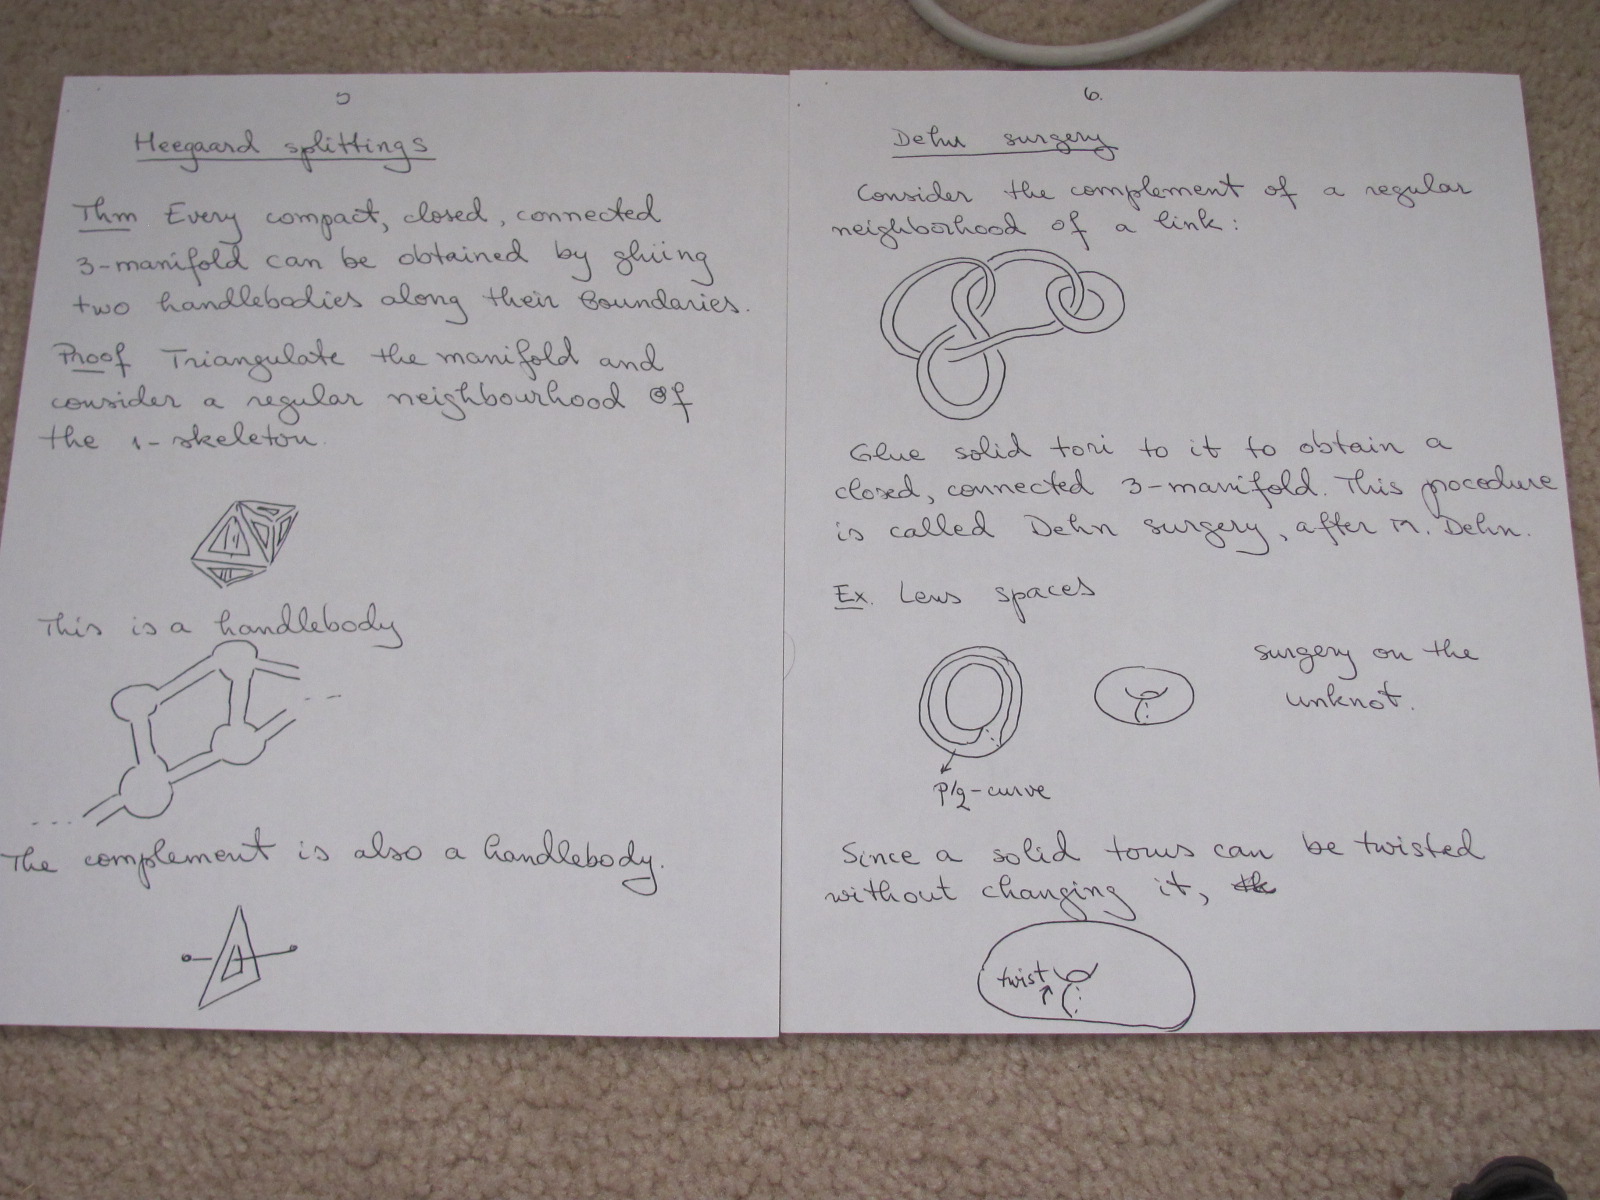 5
Heegaard splittings
Thm Every compact, closed, connected
3-manifold can be obtained by gluing
two handlebodies along their boundaries.
Proof Triangulate the manifold and
consider a regular neighbourhood of
the 1-skeleton.
This is a handlebody
The complement is also a handlebody.
6.
Dehn surgery
Consider the complement of a regular
neighborhood of a link:
Glue solid tori to it to obtain a
closed, connected 3-manifold. This pocedure
is called Dehn surgery, after M. Dehn.
Ex. Lens spaces
surgery on the
unknot.
p/q-curve
Since a solid torus can be twisted
without changing it,
twist